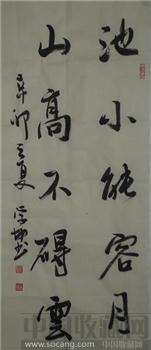 池小能容月
山高不碍雲
辛卯之夏
中国收藏网
www.socang.com
中国收藏网